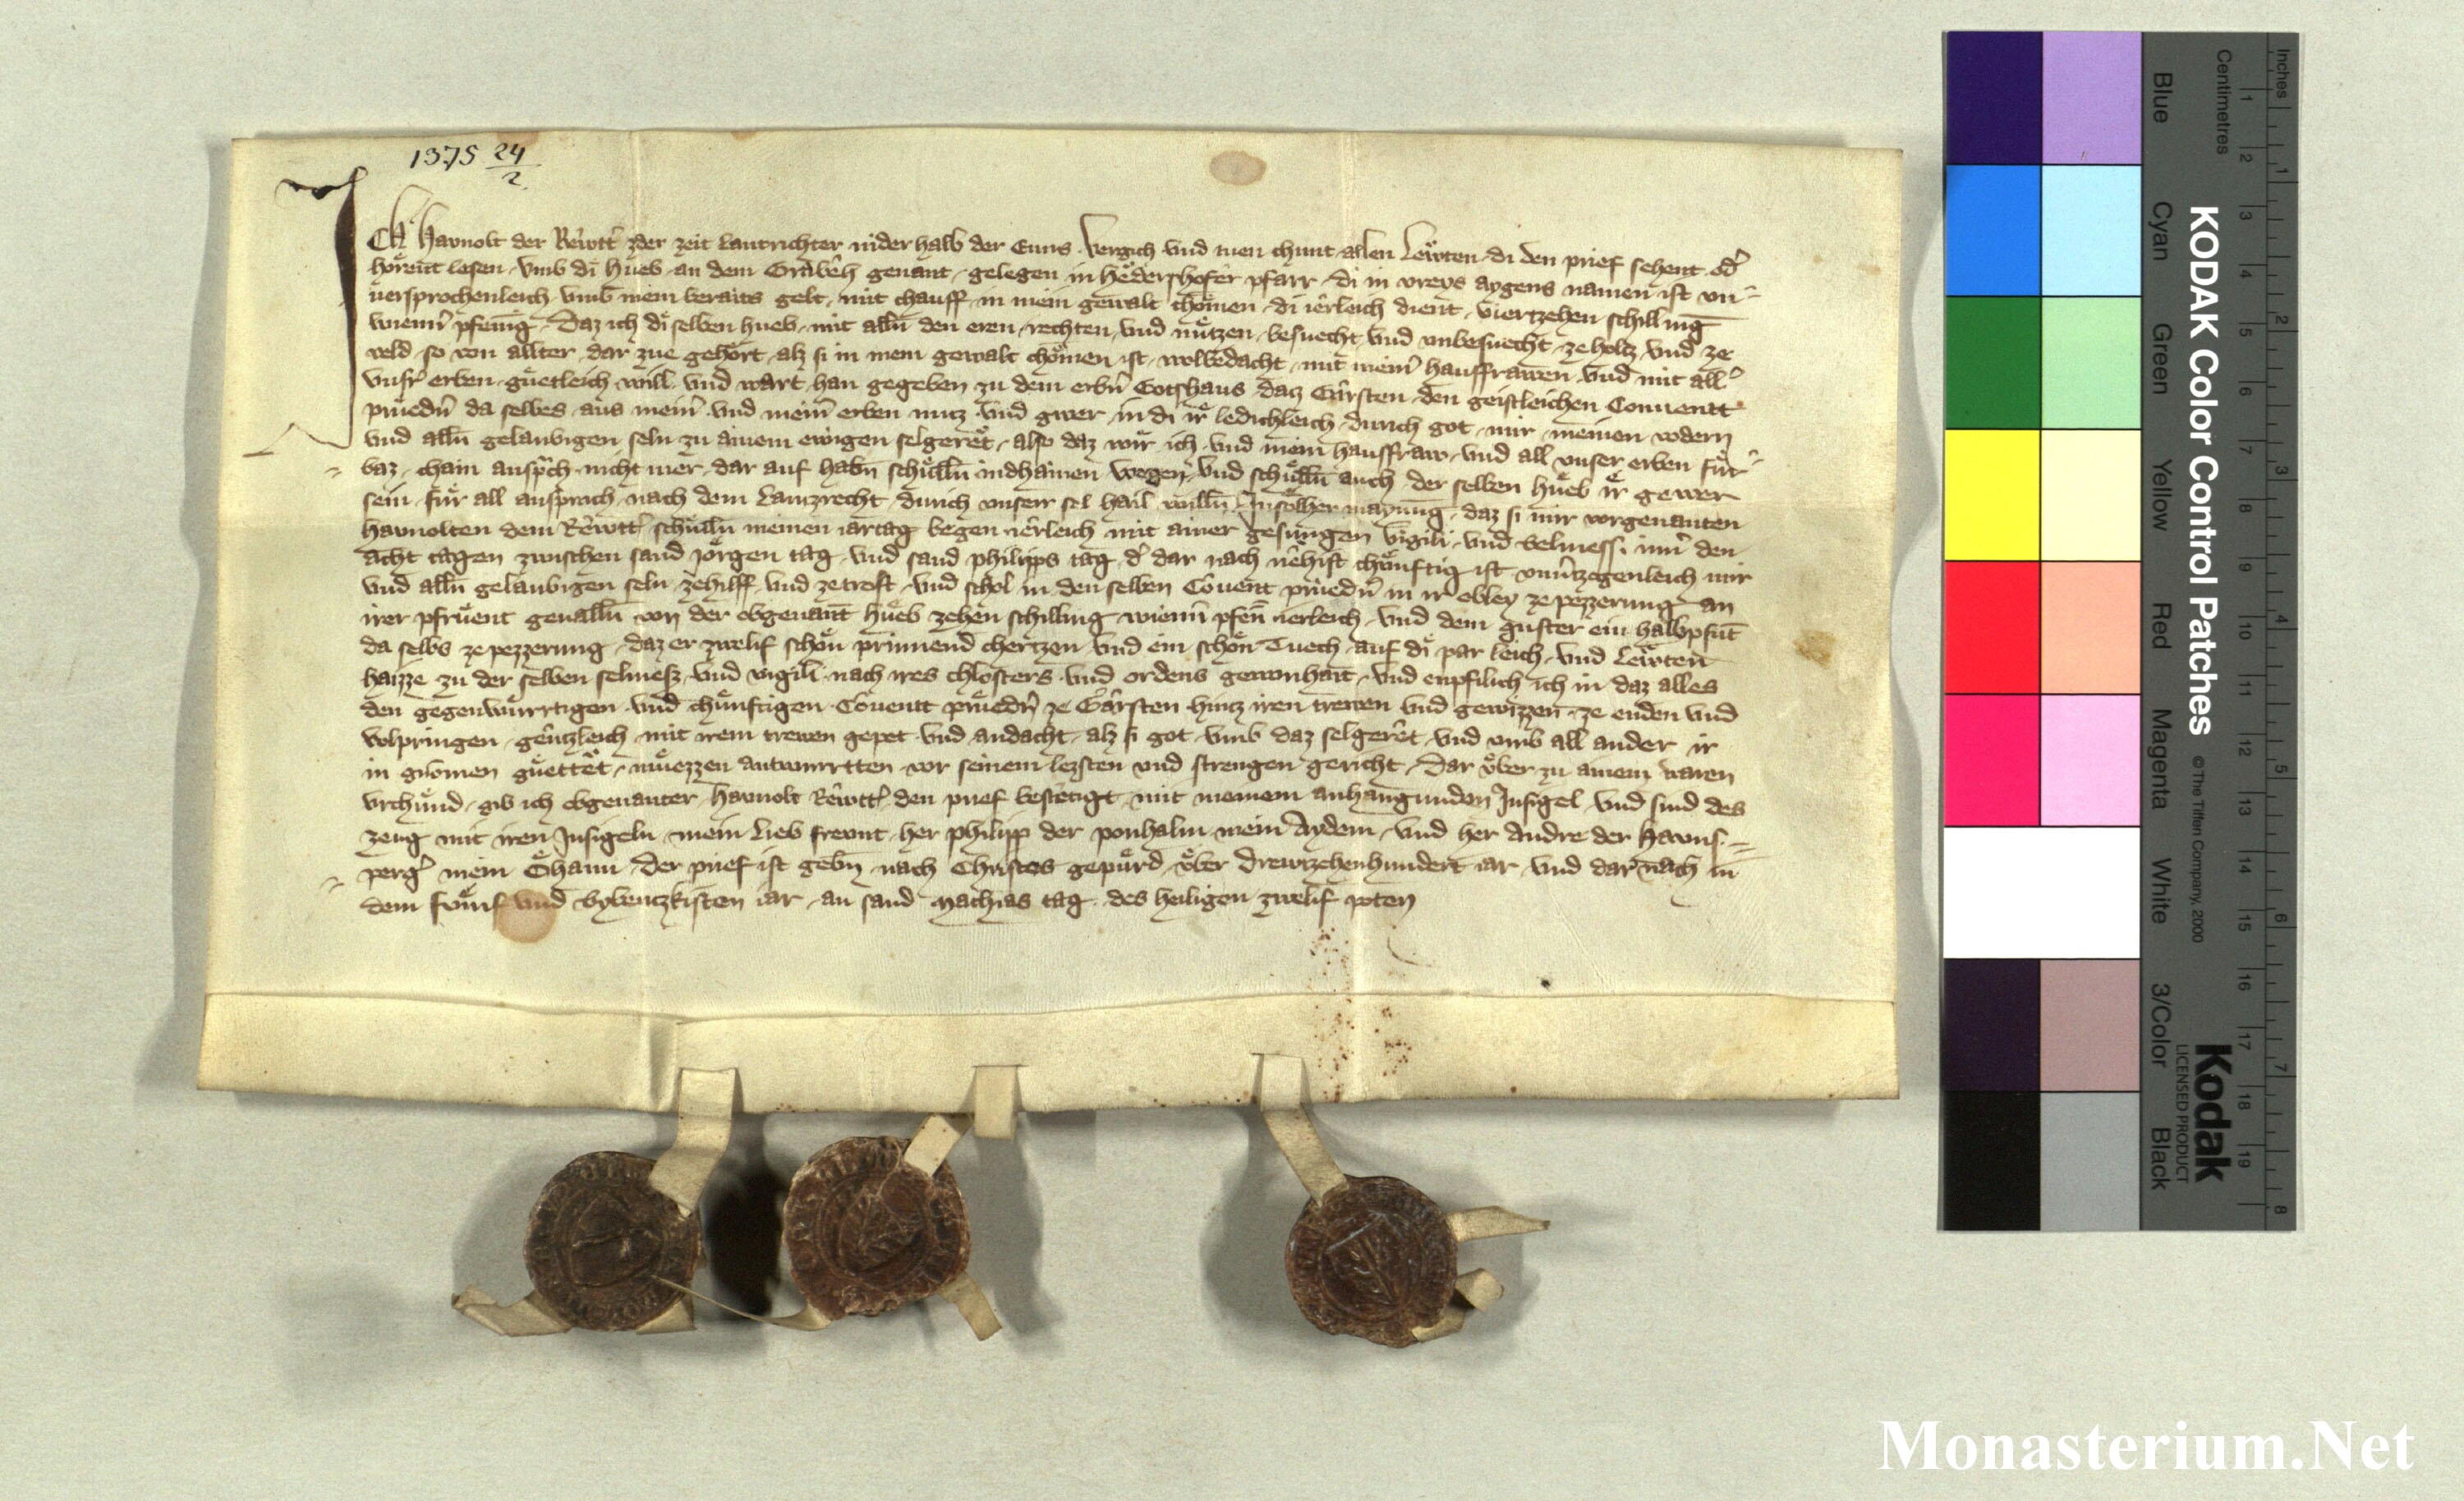 1375 24/2
Ich Haunolt der Rêwtt̉ zder zeit lantrichter nider halb der Enns · Vergich vnd tuen chunt allen Lewten di den prief sehent od̉
hőrent lesen · vmb di Hueb an dem Grabêch genant · gelegen in Hedershofer pfarr · di in vreys aygens namen ist vn=
uersprochenleich vmb mein beraits gelt · mit chauff in mein gewalt chömen · di iêrleich dient viertzehen schilling
wienn̉ pfening · Daz ich di selben hueb mit alln̄ den eren rechten vnd nützen besuecht vnd vnbesuecht ze holtz vnd ze
veld so von allter dar zue gehört · alz si in mein gewalt chömen ist · wolbedacht mit mein̉ hausfrawen vnd mit all̉
vnsr̉ erben guetleich will vnd wart han gegeben zu dem erbn̄ Gotshaus datz Gärsten den geistleichen Conuentt
prüedn̉ da selbes aus mein̉ vnd mein̉ erben nutz vnd gwer in di ir ledichleich durich got · mir meinen vodern
vnd alln̄ gelaubigen seln zu ainem ewigen selgerêt · also daz wir ich vnd mein hausfraw vnd all vnser erben für=
baz chain ansprich nicht mer dar auf habn̄ schülln̄ indhainen wegen vnd schülln̄ auch der selben hueb ir gewer
sein für all ansprach nach dem Lantzrecht durich vnserr sel hail willn̄ Insölher maynung daz si mir vorgenanten
Haunolten dem Rêwtt̉ schülln̄ meinen iartag begen iêrleich mit ainer gesungen vigili vnd selmess inn̉ den
acht tagen zwischen sand Jörgen tag vnd sand philipps tag d̉ dar nach nêhist chünftig ist vnuertzogenleich mir
vnd alln̄ gelaubigen seln ze hilff vnd ze trost · vnd schol in den selben Cōuent prüedn̉ in ir obley ze pezzerung an
irer pfruent geualln̄ von der obgenant hueb zehen schilling wienn̉ pfen̄ ierleich vnd dem guster ein halbpfūt
da selbs ze pezzerung daz er zwelif schön prinnend chertzen vnd ein schön Tuech auf di par leich vnd Lewten
haizze zu der selben selmess vnd vigili nach ires chlosters vnd ordens gewonhait · vnd enpfilich ich in daz alles
den gegenwürrtigen vnd chünftigen Cōuentt prüedn̉ ze Gärsten hintz iren trewen vnd gewizzen ze enden vnd
volpringen gêntzleich mit irem trewen gepet vnd andacht alz si got vmb daz selgerêt vnd vmb all ander ir
in gnomen guettêt müezzen antwurrtten vor seinem lezsten vnd strengen gericht · Dar über zu ainem waren
vrchund gib ich obgenanter Haunolt Rêwtt̉ den prief bestêtigt mit meinem anhangunden Insigel vnd sind des
zeug mit iren Insigeln mein lieb freunt her philipp der ponhalm mein Aydem vnd her Andre der Hauns=
perg̉ mein Öhaim · Der prief ist gebn̄ nach Christes gepurd über Drewtzehenhundert iar vnd dar nach in
dem fumf vnd sybentzkisten iar an sand Mathias tag des heiligen zwelif poten
KODAK Color Control Patches
© The Tiffen Company, 2000
Kodak
LICENSED PRODUCT
Blue
Cyan
Green
Yellow
Red
Magenta
White
3/Color
Black
Inches
1 2 3 4 5 6 7 8
Centimetres
1 2 3 4 5 6 7 8 9 10 11 12 13 14 15 16 17 18 19
Monasterium.Net